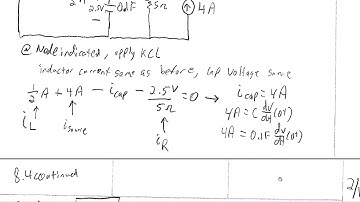 2.5V 0.1F 5Ω 4A
@ Node indicated, apply KCL
inductor current same as before, cap voltage same
1/2 A + 4A - i_cap - 2.5V/5Ω = 0 → i_cap = 4A
4A = C dv/dt (0+)
4A = 0.1F dv/dt (0+)
i_L i_source i_R
8.4 continued